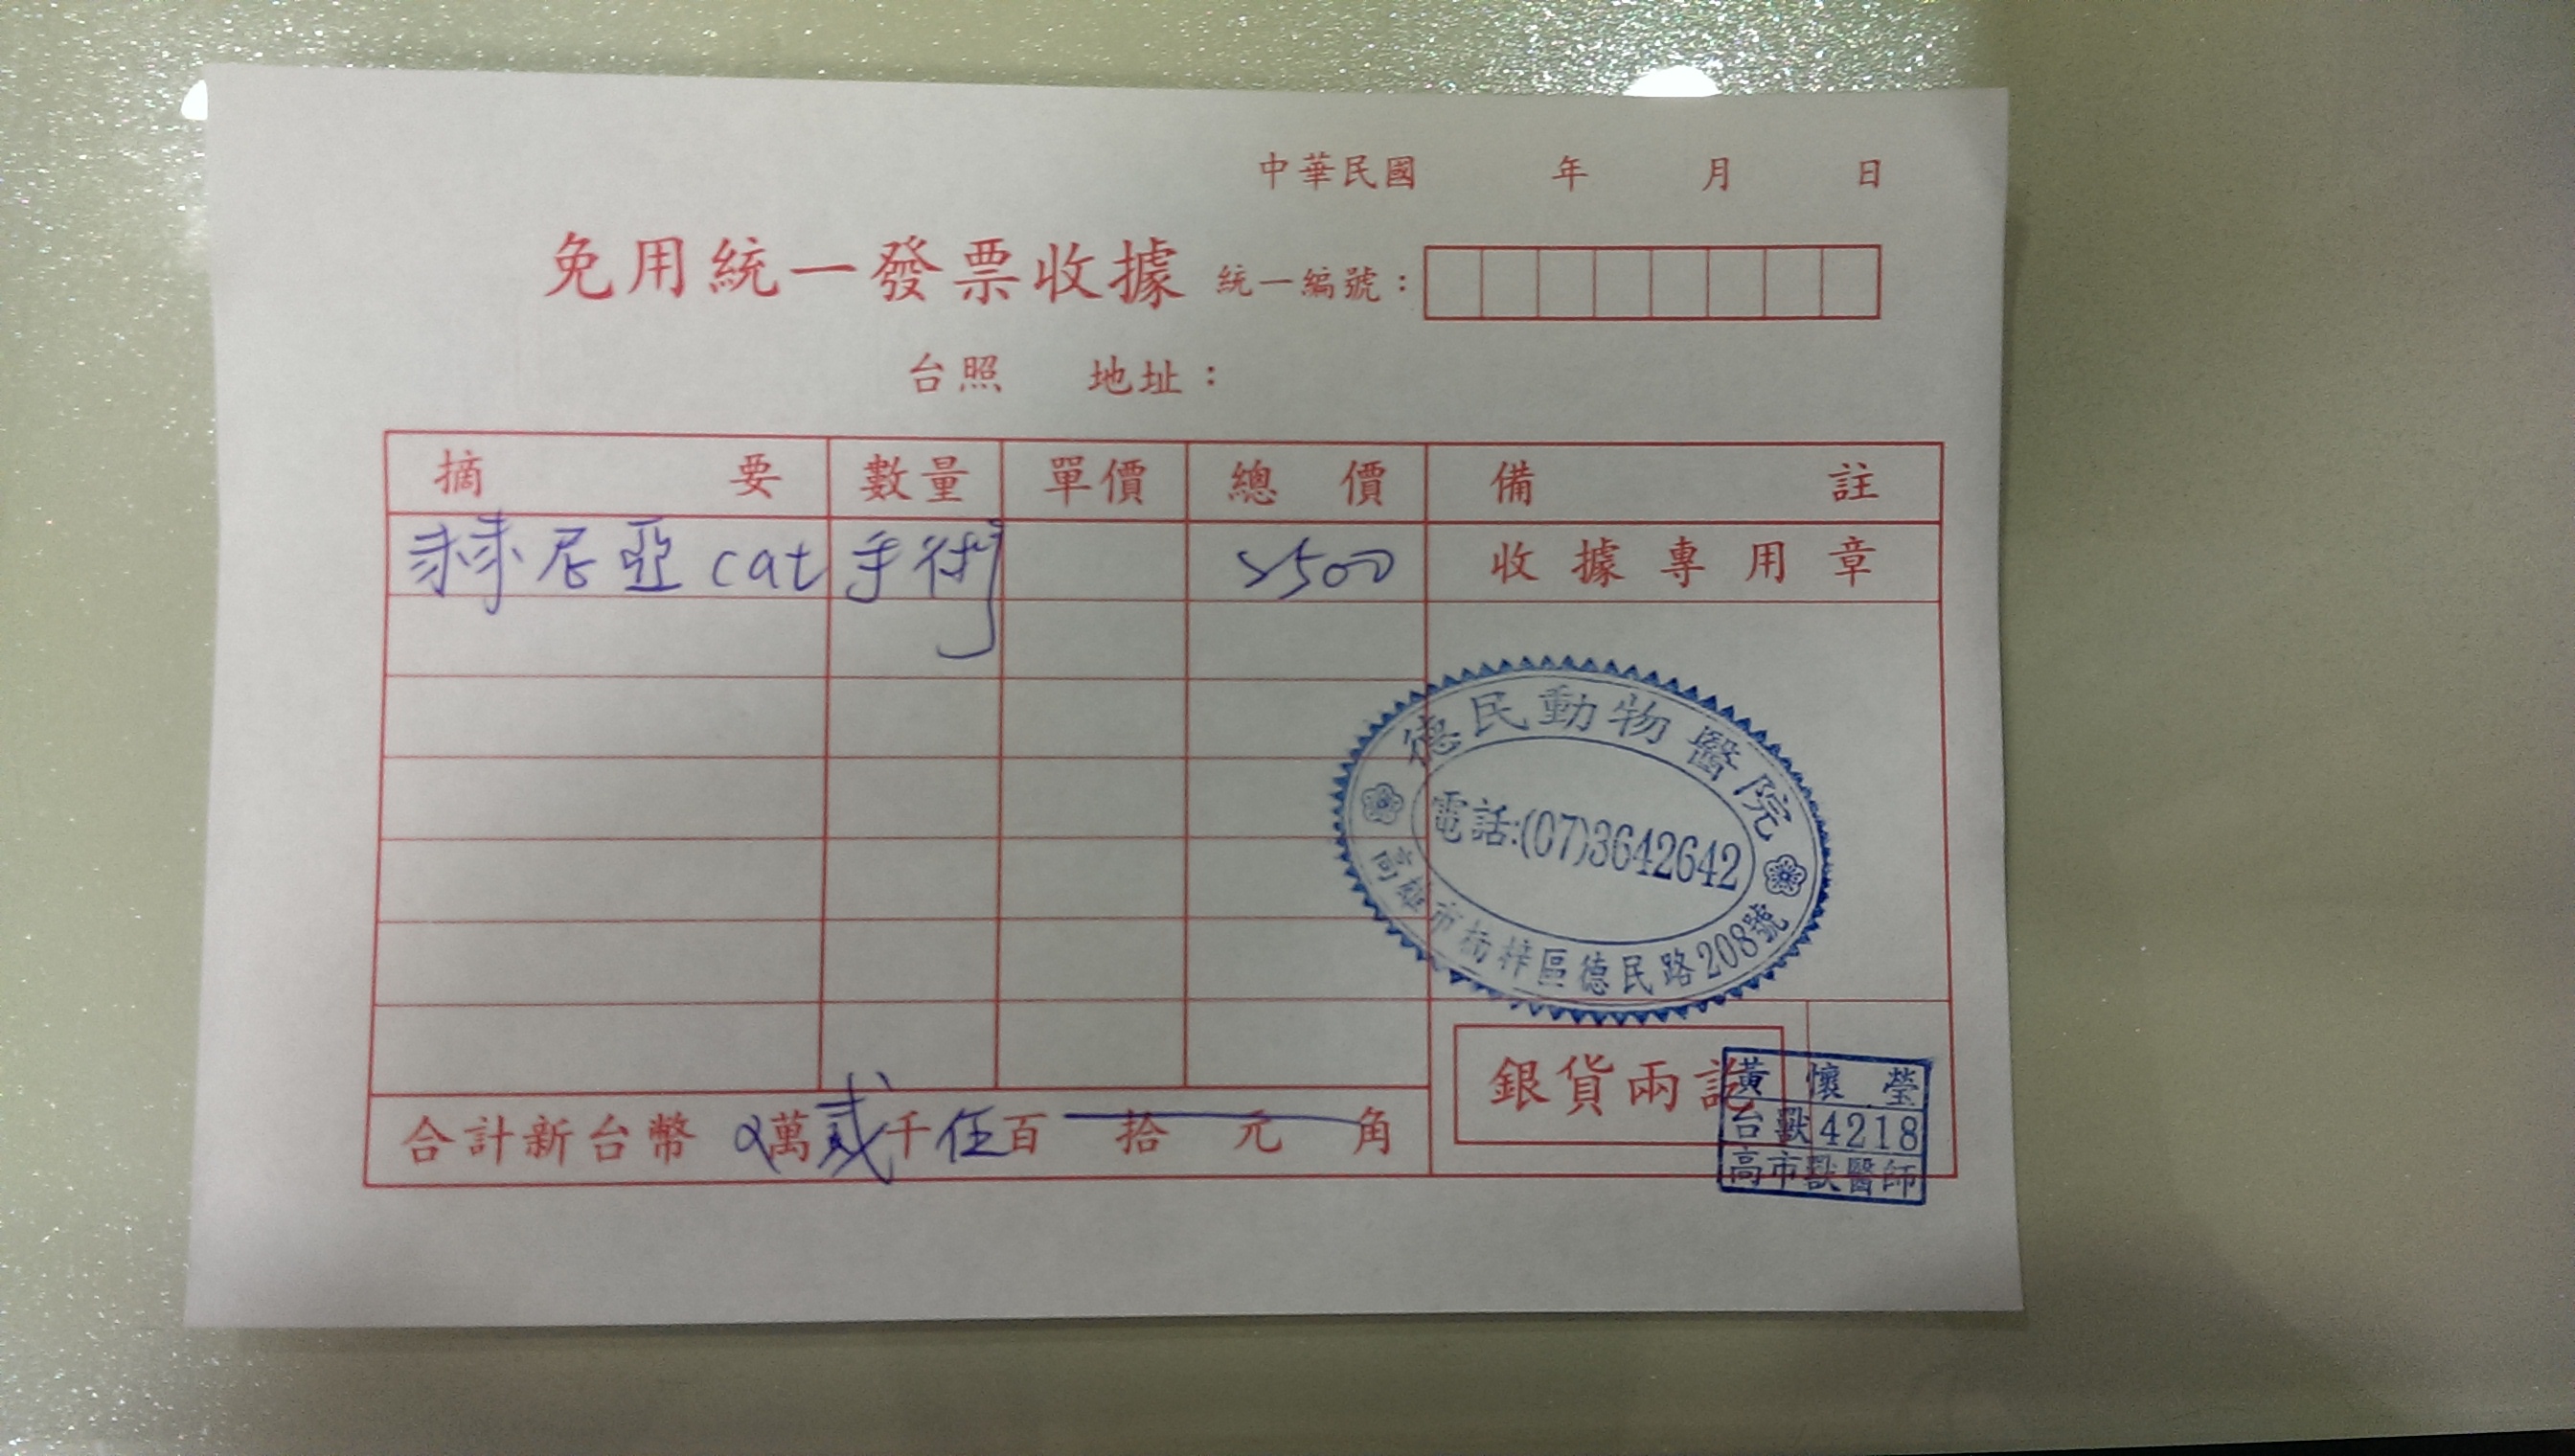 中華民國 年 月 日
免用統一發票收據 統一編號：
台照 地址：
摘要 數量 單價 總價 備註
赫尼亞cat手術 2500 收據專用章
德民動物醫院
電話:(07)3642642
高雄市楠梓區德民路208號
銀貨兩訖
黃懷瑩
台獸4218
高市獸醫師
合計新台幣 萬貳千伍百拾元角